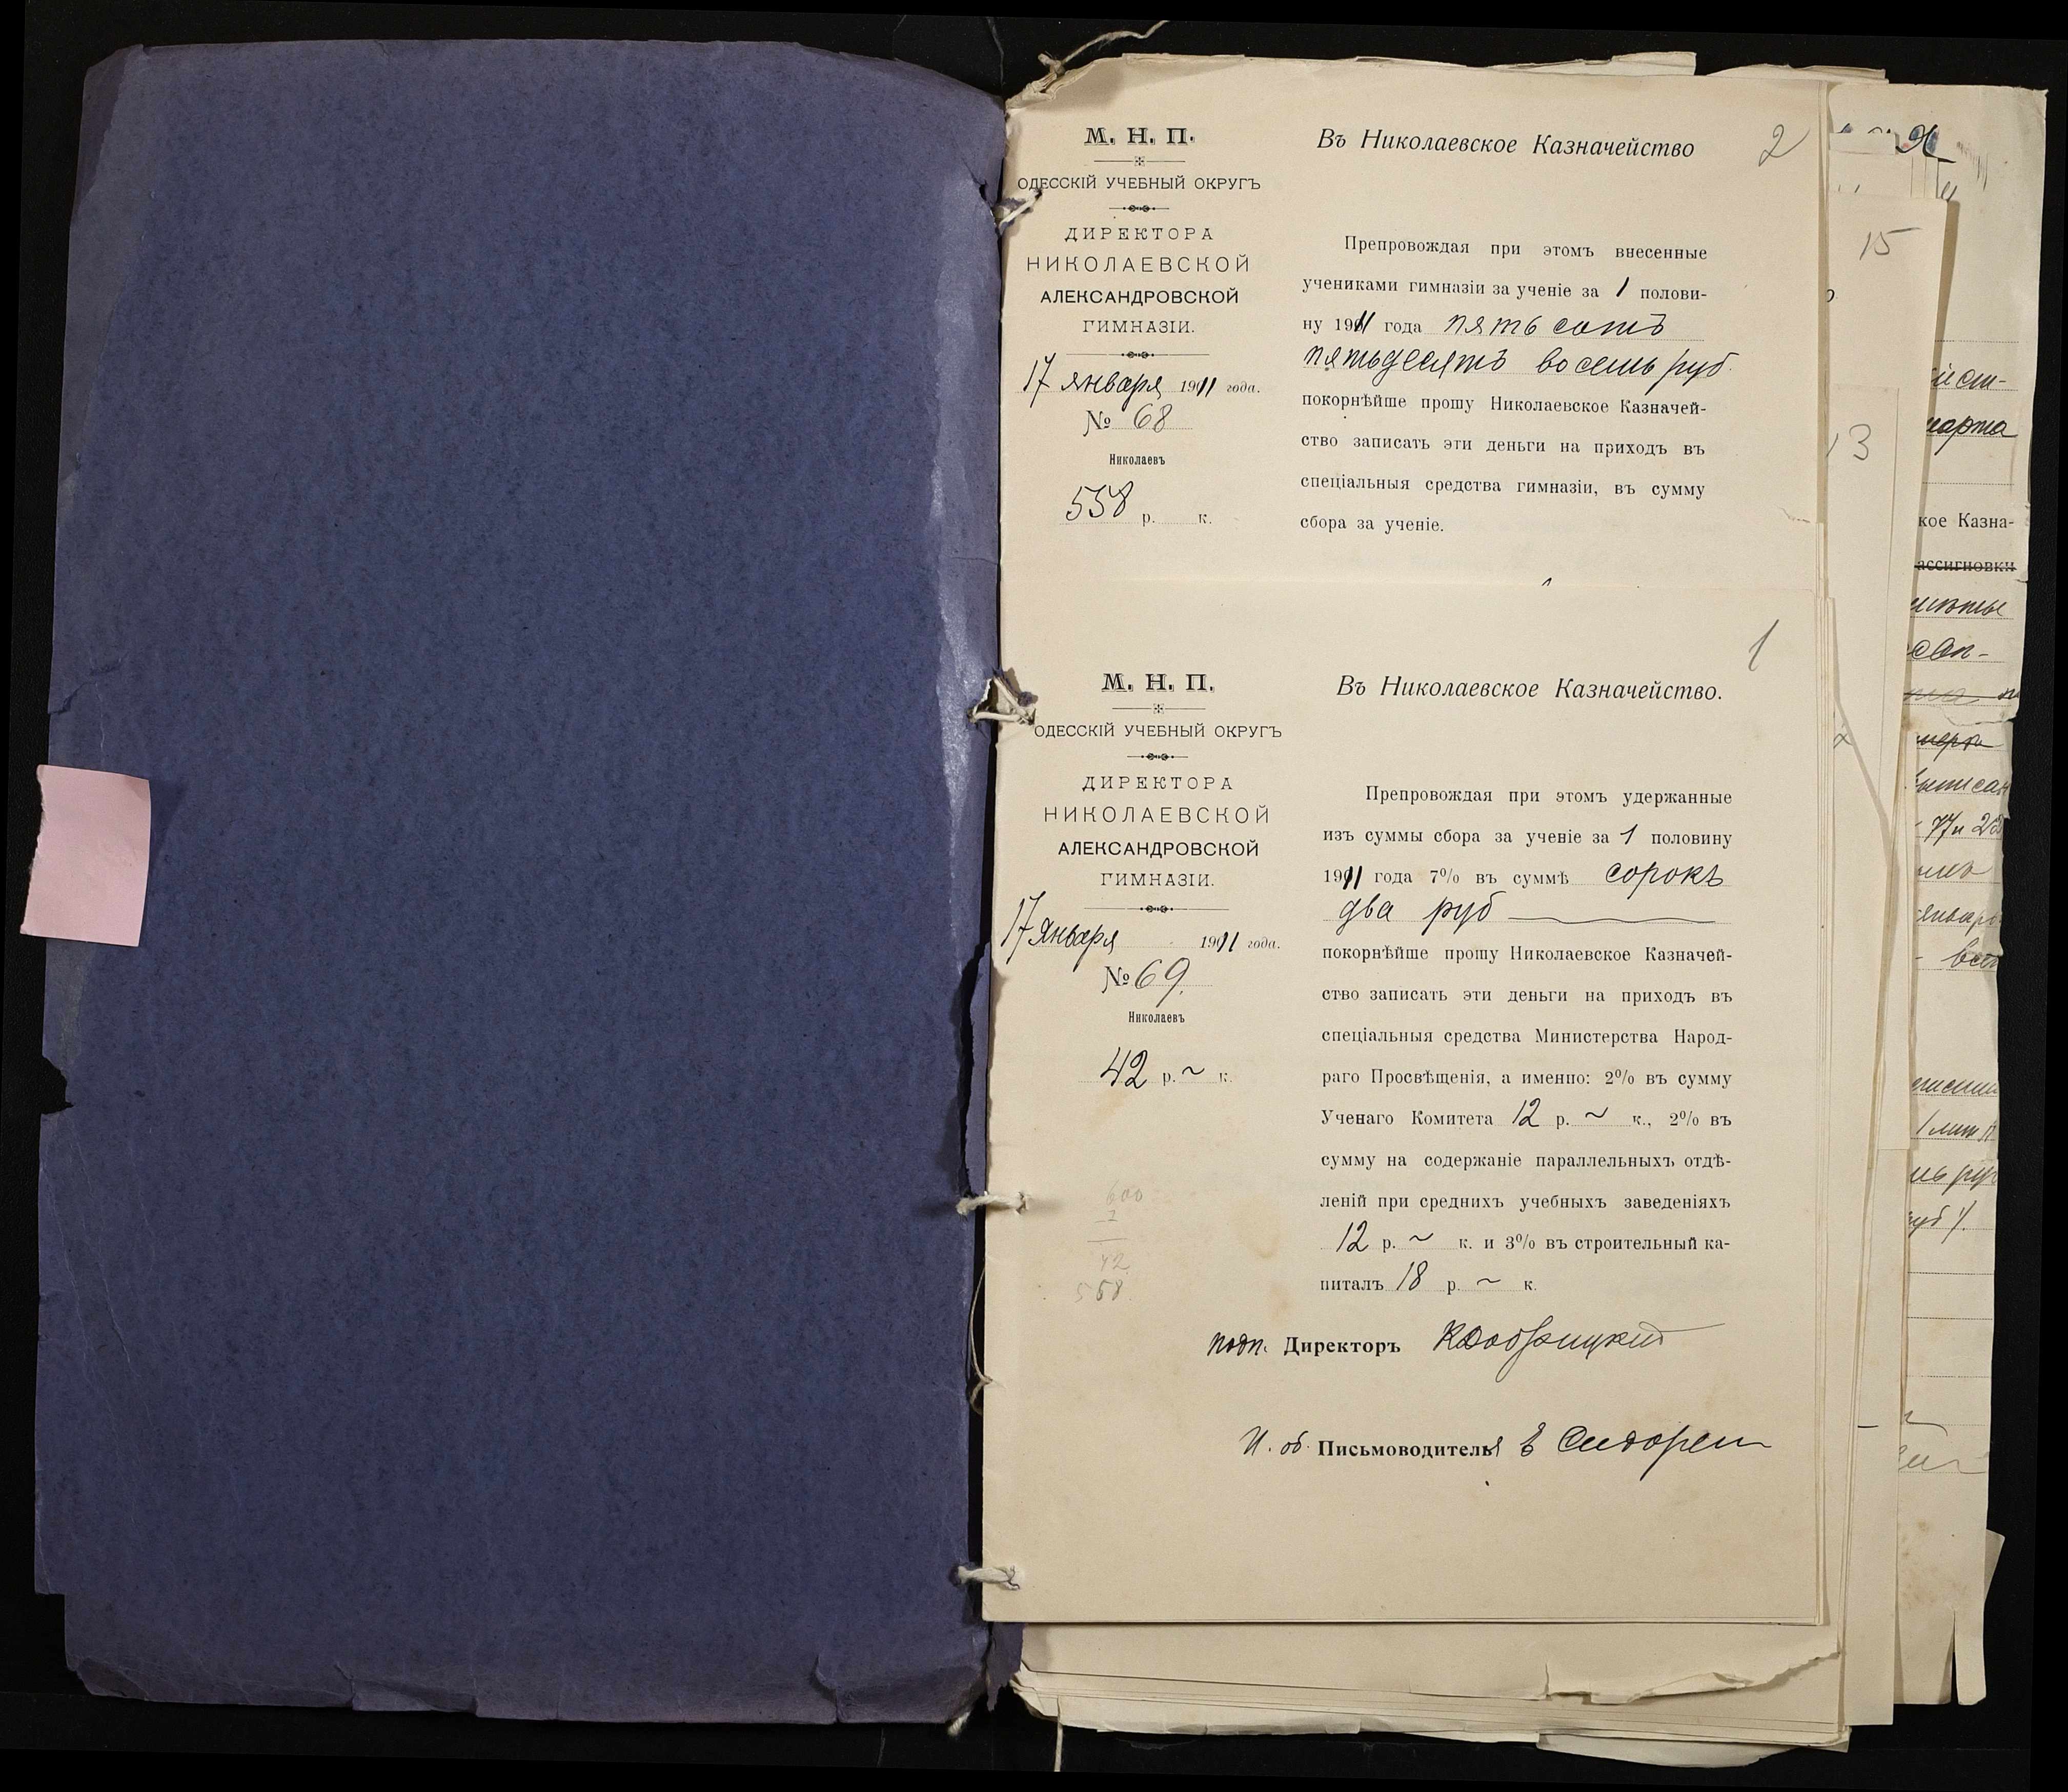 М. Н. П.
ОДЕССКІЙ УЧЕБНЫЙ ОКРУГЪ
ДИРЕКТОРА
НИКОЛАЕВСКОЙ
АЛЕКСАНДРОВСКОЙ
ГИМНАЗІИ.
17 января 1911 года.
№ 68
Николаевъ
558 р. к.
Въ Николаевское Казначейство
2
Препровождая при этомъ внесенные
учениками гимназіи за ученіе за 1 полови-
ну 1911 года пять сотъ
пятьдесятъ восемь руб.
покорнѣйше прошу Николаевское Казначей-
ство записать эти деньги на приходъ въ
спеціальныя средства гимназіи, въ сумму
сбора за ученіе.
1
М. Н. П.
ОДЕССКІЙ УЧЕБНЫЙ ОКРУГЪ
ДИРЕКТОРА
НИКОЛАЕВСКОЙ
АЛЕКСАНДРОВСКОЙ
ГИМНАЗІИ.
17 Января 1911 года.
№ 69.
Николаевъ
42 р. ~ к.
600
7
42
558
Въ Николаевское Казначейство.
Препровождая при этомъ удержанные
изъ суммы сбора за ученіе за 1 половину
1911 года 7% въ суммѣ сорокъ
два руб
покорнѣйше прошу Николаевское Казначей-
ство записать эти деньги на приходъ въ
спеціальныя средства Министерства Народ-
раго Просвѣщенія, а именно: 2% въ сумму
Ученаго Комитета 12 р. ~ к., 2% въ
сумму на содержаніе параллельныхъ отдѣ-
леній при среднихъ учебныхъ заведеніяхъ
12 р. ~ к. и 3% въ строительный ка-
питалъ 18 р. ~ к.
подп. Директоръ
И. об. Письмоводителя
15
13
марта
кое Казна-
ассигновки